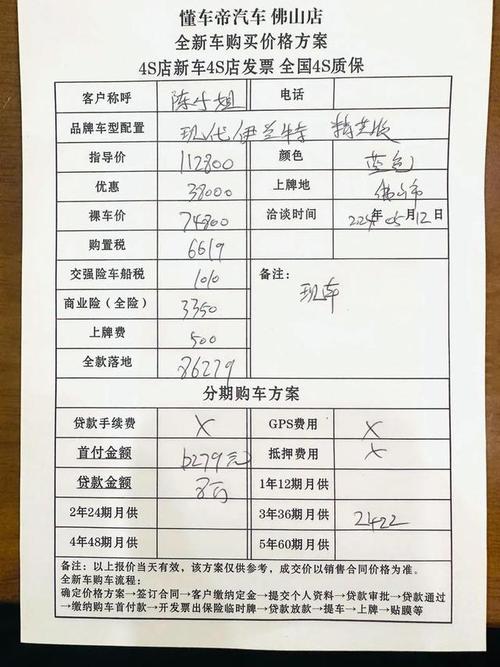 懂车帝汽车 佛山店
全新车购买价格方案
4S店新车4S店发票 全国4S质保
客户称呼 陈小姐 电话
品牌车型配置 现代伊兰特 精英版
指导价 112800 颜色 蓝色
优惠 38000 上牌地 佛山市
裸车价 74800 洽谈时间 2024年05月12日
购置税 6619
交强险车船税 1010 备注:
商业险（全险） 3350 现车
上牌费 500
全款落地 86279
分期购车方案
贷款手续费 X GPS费用 X
首付金额 6279元 抵押费用 X
贷款金额 8万 1年12期月供
2年24期月供 3年36期月供 2422
4年48期月供 5年60期月供
备注：以上报价当天有效，该方案仅供参考，成交价以销售合同价格为准。
全新车购车流程:
确定价格方案→签订合同→客户缴纳定金→提交个人资料→贷款审批→贷款通过
→缴纳购车首付款→开发票出保险临时牌→贷款放款→提车→上牌→贴膜等